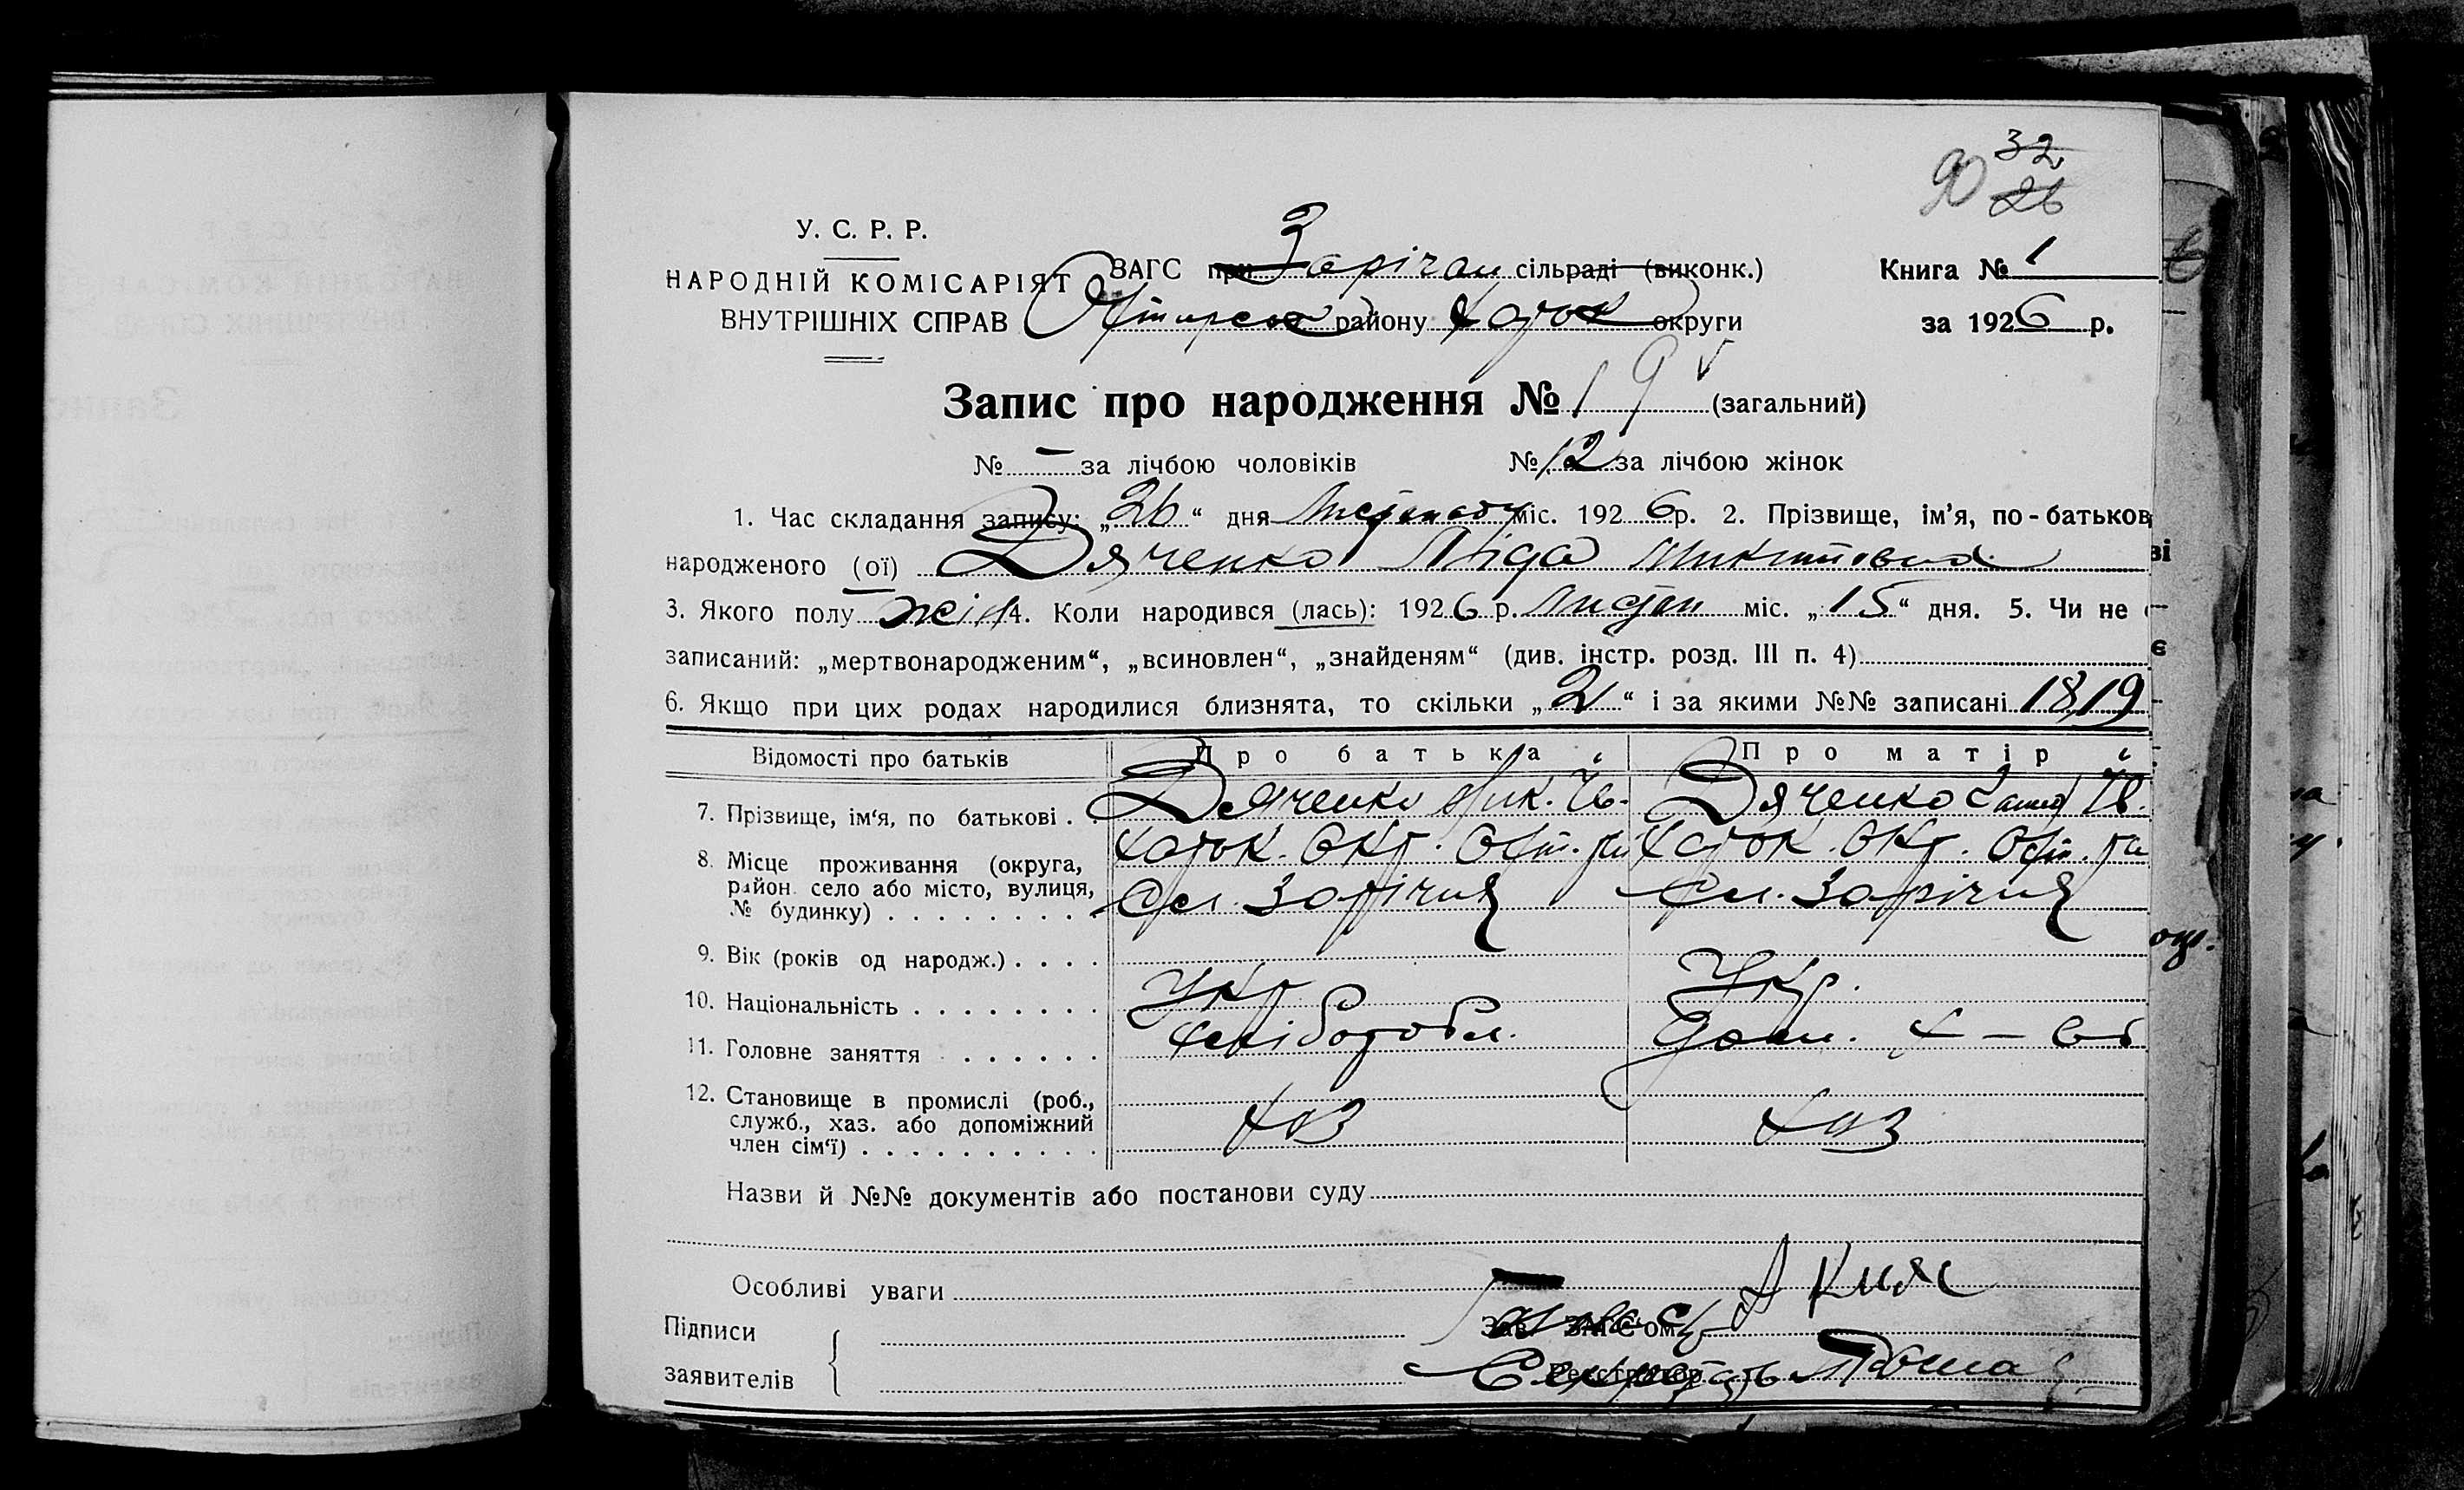 32
90 26
У. С. Р. Р.
НАРОДНІЙ КОМІСАРІЯТ
ВНУТРІШНІХ СПРАВ
ВАГС при Зарічан сільраді (виконк.)
району Харьк округи
Книга № 1
за 1926 р.
Запис про народження № 19 (загальний)
№ — за лічбою чоловіків № 12 за лічбою жінок
1. Час складання запису: „26“ дня Листопаду міс. 1926 р. 2. Прізвище, ім’я, по-батьков
народженого (ої) Дяченко Ліда Микитовна
3. Якого полу жін 4. Коли народився (лась): 1926 р. Листоп міс. „15“ дня. 5. Чи не
записаний: „мертвонародженим“, „всиновлен“, „знайденям“ (див. інстр. розд. III п. 4)
6. Якщо при цих родах народилися близнята, то скільки „2“ і за якими №№ записані 18,19
Відомості про батьків Про батька Про матір
7. Прізвище, ім‘я, по батькові . . Дяченко Мик. Ів. Дяченко Ів.
8. Місце проживання (округа, Харьк. Окр. Харьк. Окр.
район село або місто, вулиця, Сл. Зарічня Сл. Зарічня
№ будинку)
9. Вік (років од народж.)
10. Національність Укр Укр.
11. Головне заняття Хлібороб Дом.
12. Становище в промислі (роб.,
служб., хаз. або допоміжний Хаз Хаз
член сім‘ї)
Назви й №№ документів або постанови суду
Особливі уваги
Підписи Зав. ЗАГС'ом
заявителів Реєстратор Секретарь